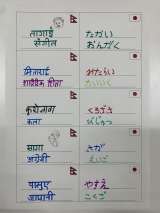 संगीत
たかい
おんがく
शारीरिक शिक्षा
みたらい
たいいく
कला
びじゅつ
सागा
अंग्रेजी
さが
えいご
जापानी
やすえ
こくご